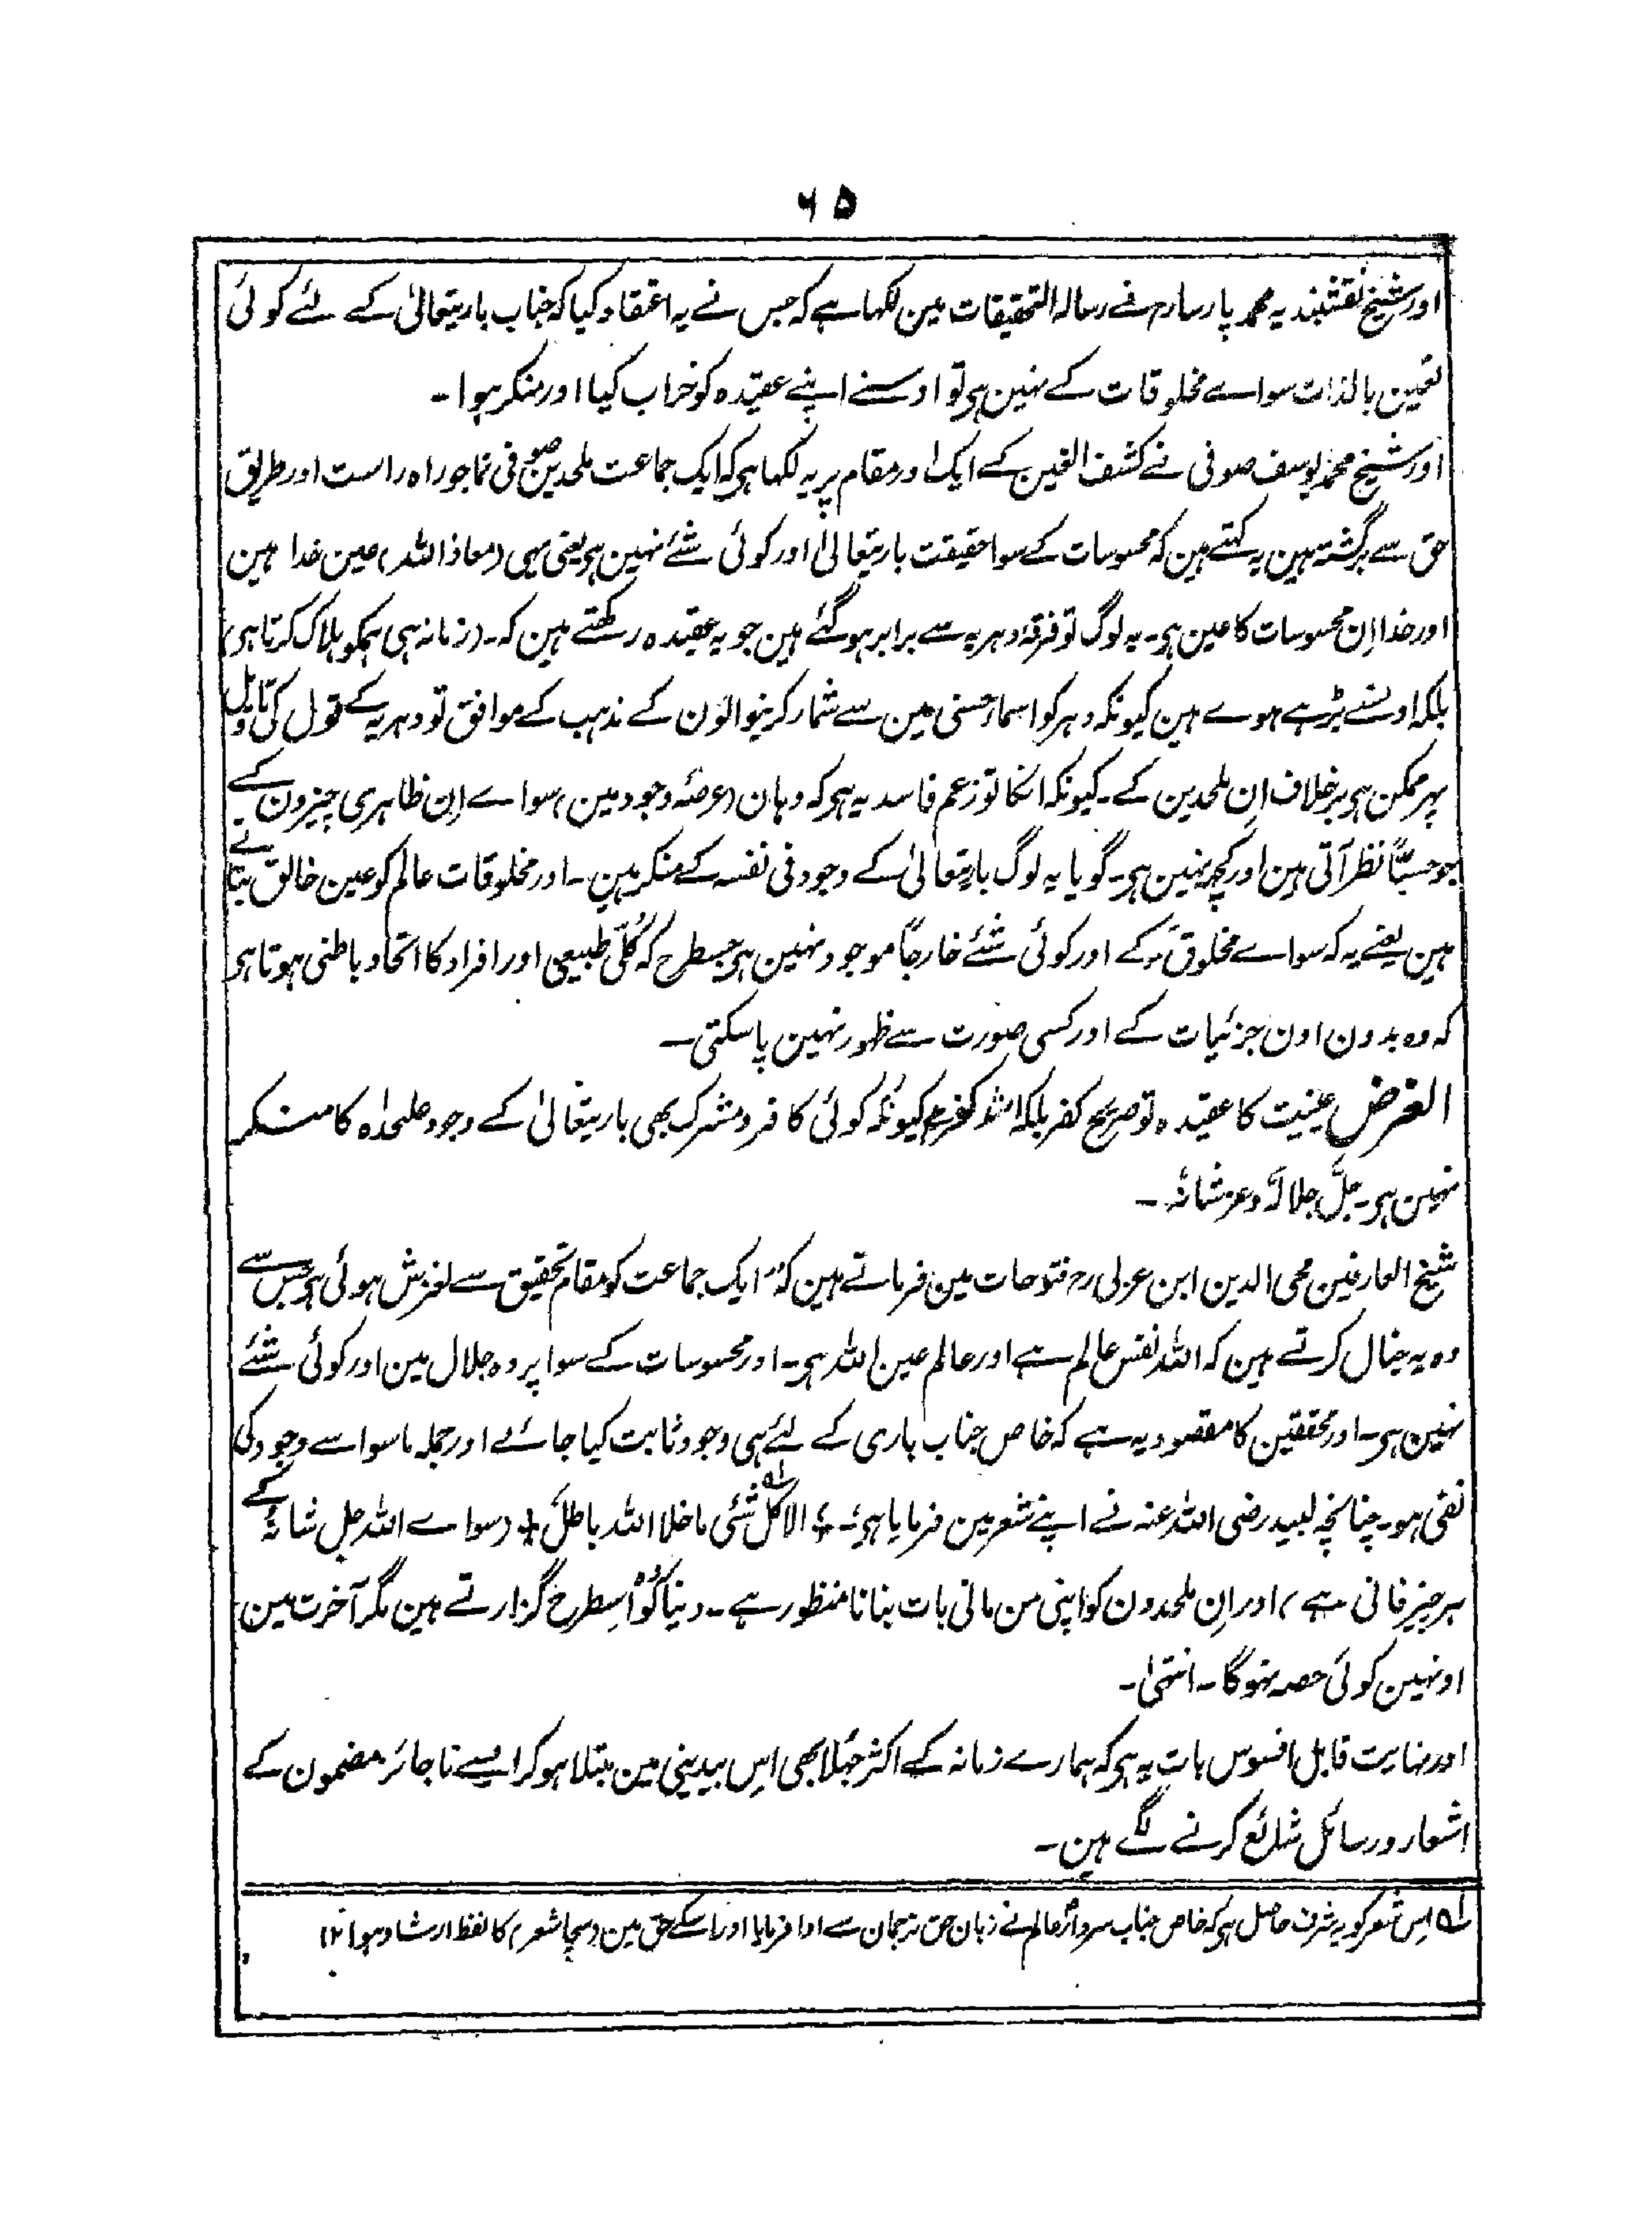 ۶۵
اور شیخ نقشبندیہ محمد پارسا رح نے رسالہ التحقیقات مین لکہا ہے کہ جس نے یہ اعتقاد کیا کہ جناب باریتعالیٰ کے لئے کوئی
تعین بالذات سواے مخلوقات کے نہین ہی تو اوسنے اپنے عقیدہ کو خراب کیا اور منکر ہوا۔
اور شیخ محمد یوسف صوفی نے کشف الغین کے ایک اور مقام پر یہ لکہا ہی کہ ایک جماعت ملحدین صوفی نما جو راہ راست اور طریق
حق سے برگشتہ ہین یہ کہتے ہین کہ محسوسات کے سوا حقیقت باریتعالیٰ اور کوئی شئے نہین ہی یعنی یہی (معاذ اللہ) عین خدا ہین
اور خدا اِن محسوسات کا عین ہی۔ یہ لوگ تو فرقۂ دہریہ سے برابر ہو گئے ہین جو یہ عقیدہ رکھتے ہین کہ۔ (زمانہ ہی ہمکو ہلاک کرتا ہی)
بلکہ اونسے بڑہے ہوے ہین کیونکہ دہر کو اسماء حسنی مین سے شمار کرنیوالون کے مذہب کے موافق تو دہریہ کے قول کی تاویل
پہر ممکن ہی برخلاف اِن ملحدین کے۔ کیونکہ انکا تو زعم فاسد یہ ہی کہ وہان (عرصۂ وجود مین) سواے اِن ظاہری چیزون کے
جو حسًّا نظر آتی ہین اور کچہہ نہین ہی۔ گویا یہ لوگ باریتعالیٰ کے وجود فی نفسہ کے منکر ہین۔ اور مخلوقات عالم کو عین خالق بتاتے
ہین یعنے یہ کہ سواے مخلوق کے اور کوئی شئے خارجًا موجود نہین ہی جسطرح کہ کُلّی طبیعی اور افراد کا اتحاد باطنی ہوتا ہی
کہ وہ بدون اون جزئیات کے اور کسی صورت سے ظہور نہین پا سکتی۔
الغرض عینیت کا عقیدہ تو صریح کفر بلکہ اشد کفر ہی کیونکہ کوئی کافر و مشرک بھی باریتعالیٰ کے وجود علیحدٰہ کا منکر
نہین ہی۔ جلَّ جلالہٗ وعز شانہٗ۔
شیخ العارفین محی الدین ابن عربی رح فتوحات مین فرماتے ہین کہ ”ایک جماعت کو مقام تحقیق سے لغزش ہوئی ہی جس سے
وہ یہ خیال کرتے ہین کہ اللہ نفس عالم ہے اور عالم عین اللہ ہی۔ اور محسوسات کے سوا پردہ جلال مین اور کوئی شئے
نہین ہی۔ اور محققین کا مقصود یہ ہے کہ خاص جناب باری کے لئے ہی وجود ثابت کیا جائے اور جملہ ماسوا سے وجود کی
نفی ہو۔ چنانچہ لبید رضی اللہ عنہ نے اپنے شعر مین فرمایا ہی۔ ؏ الا کل شئی ما خلا اللہ باطلٗ؀۱ (سواے اللہ جل شانہٗ کے
ہر چیز فانی ہے) اور اِن ملحدون کو اپنی من مانی بات بنانا منظور ہے۔ دنیا کو تو اُسطرح گزارتے ہین مگر آخرت مین
اونہین کوئی حصہ نہوگا۔ انتہیٰ۔
اور نہایت قابل افسوس بات یہ ہی کہ ہمارے زمانہ کے اکثر جُہلا بھی اِس بیدینی مین مبتلا ہو کر ایسے ناجائز مضمون کے
اشعار و رسائل شائع کرنے لگے ہین۔
؀۱ اِس شعر کو یہ شرف حاصل ہی کہ خاص جناب سردار عالم نے زبان حق ترجمان سے ادا فرمایا اور اسکے حق مین (سچا شعر) کا لفظ ارشاد ہوا ۱۲